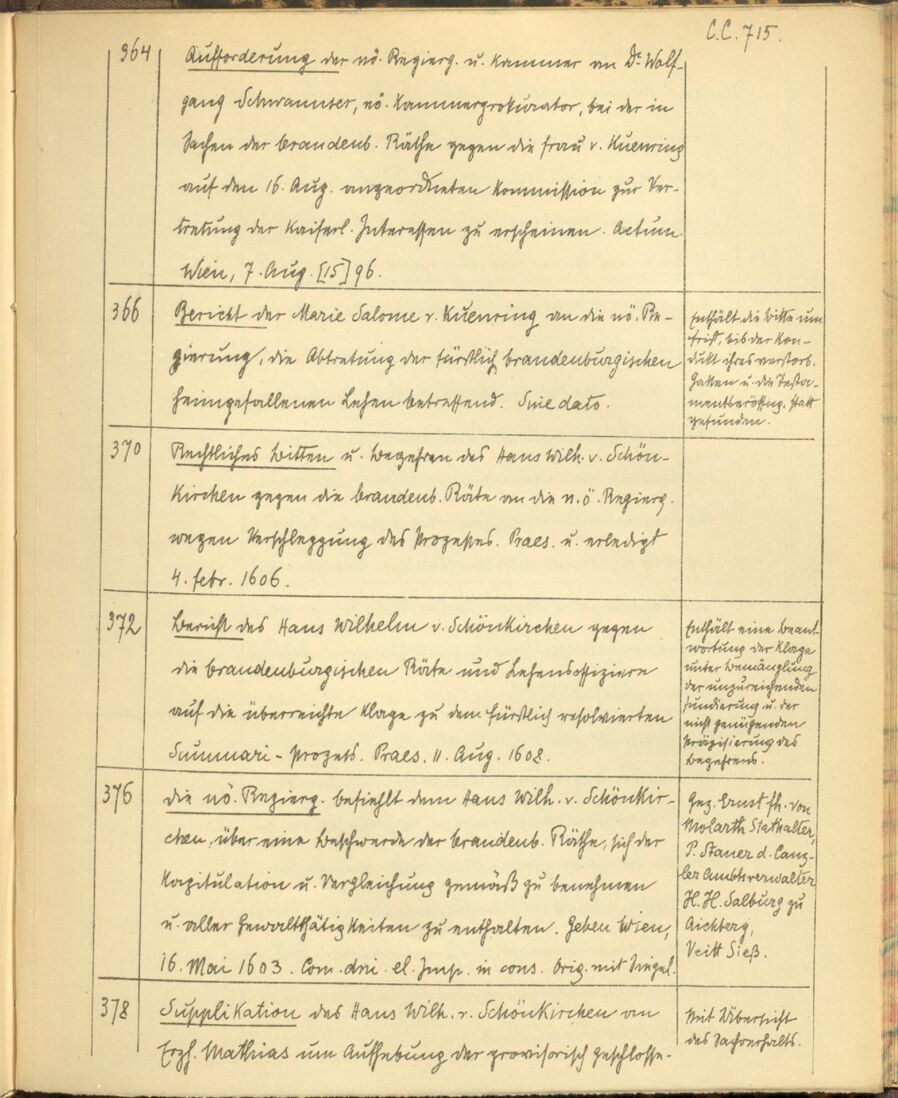 C.C. 715.
364
Aufforderung der nö. Regierg. u. Kammer an Dr. Wolf-
gang Schwannser, nö. Kammerprokurator, bei der in
Sachen der brandenb. Räthe gegen die Frau v. Kuenring
auf den 16. Aug. angeordneten Kommission zur Ver-
tretung der Kaiserl. Interessen zu erscheinen. Actum
Wien, 7. Aug. [15]96.
366
Bericht der Marie Salome v. Kuenring an die nö. Re-
gierung, die Abtretung der fürstlich brandenburgischen
heimgefallenen Lehen betreffend. Sine dato.
Enthält die Bitte um
Frist, bis der Kon-
dukt ihres verstorb.
Gatten u. die Testa-
mentseröffng. statt
gefunden.
370
Rechtliches Bitten u. Begehren des Hans Wilh. v. Schön-
kirchen gegen die brandenb. Räte an die n.ö. Regierg.
wegen Verschleppung des Prozesses. Praes. u. erledigt
4. Febr. 1606.
372
Bericht des Hans Wilhelm v. Schönkirchen gegen
die brandenburgischen Räte und Lehensoffiziere
auf die überreichte Klage zu dem fürstlich resolvierten
Summari-Prozess. Praes. 11. Aug. 1608.
Enthält eine Beant-
wortung der Klage
unter Bemänglung
der unzureichenden
Fundierung u. der
nicht genügenden
Präzisierung des
Begehrens.
376
Die nö. Regierg. befiehlt dem Hans Wilh. v. Schönkir-
chen, über eine Beschwerde der brandenb. Räthe, sich der
Kapitulation u. Vergleichung gemäß zu benehmen
u. aller Gewaltthätigkeiten zu enthalten. Geben Wien,
16. Mai 1603. Com. dni. el. Imp. in cons. Orig. mit Siegel.
Gez. Ernst fh. von
Molarth Stathalter,
P. Stauer d. Canz-
ler Amtsverwalter
H. H. Salburg zu
Aichberg,
Veitt Sieß.
378
Supplikation des Hans Wilh. v. Schönkirchen an
Erzh. Mathias um Aufhebung der provisorisch geschlosse-
Mit Übersicht
des Sachverhalts.